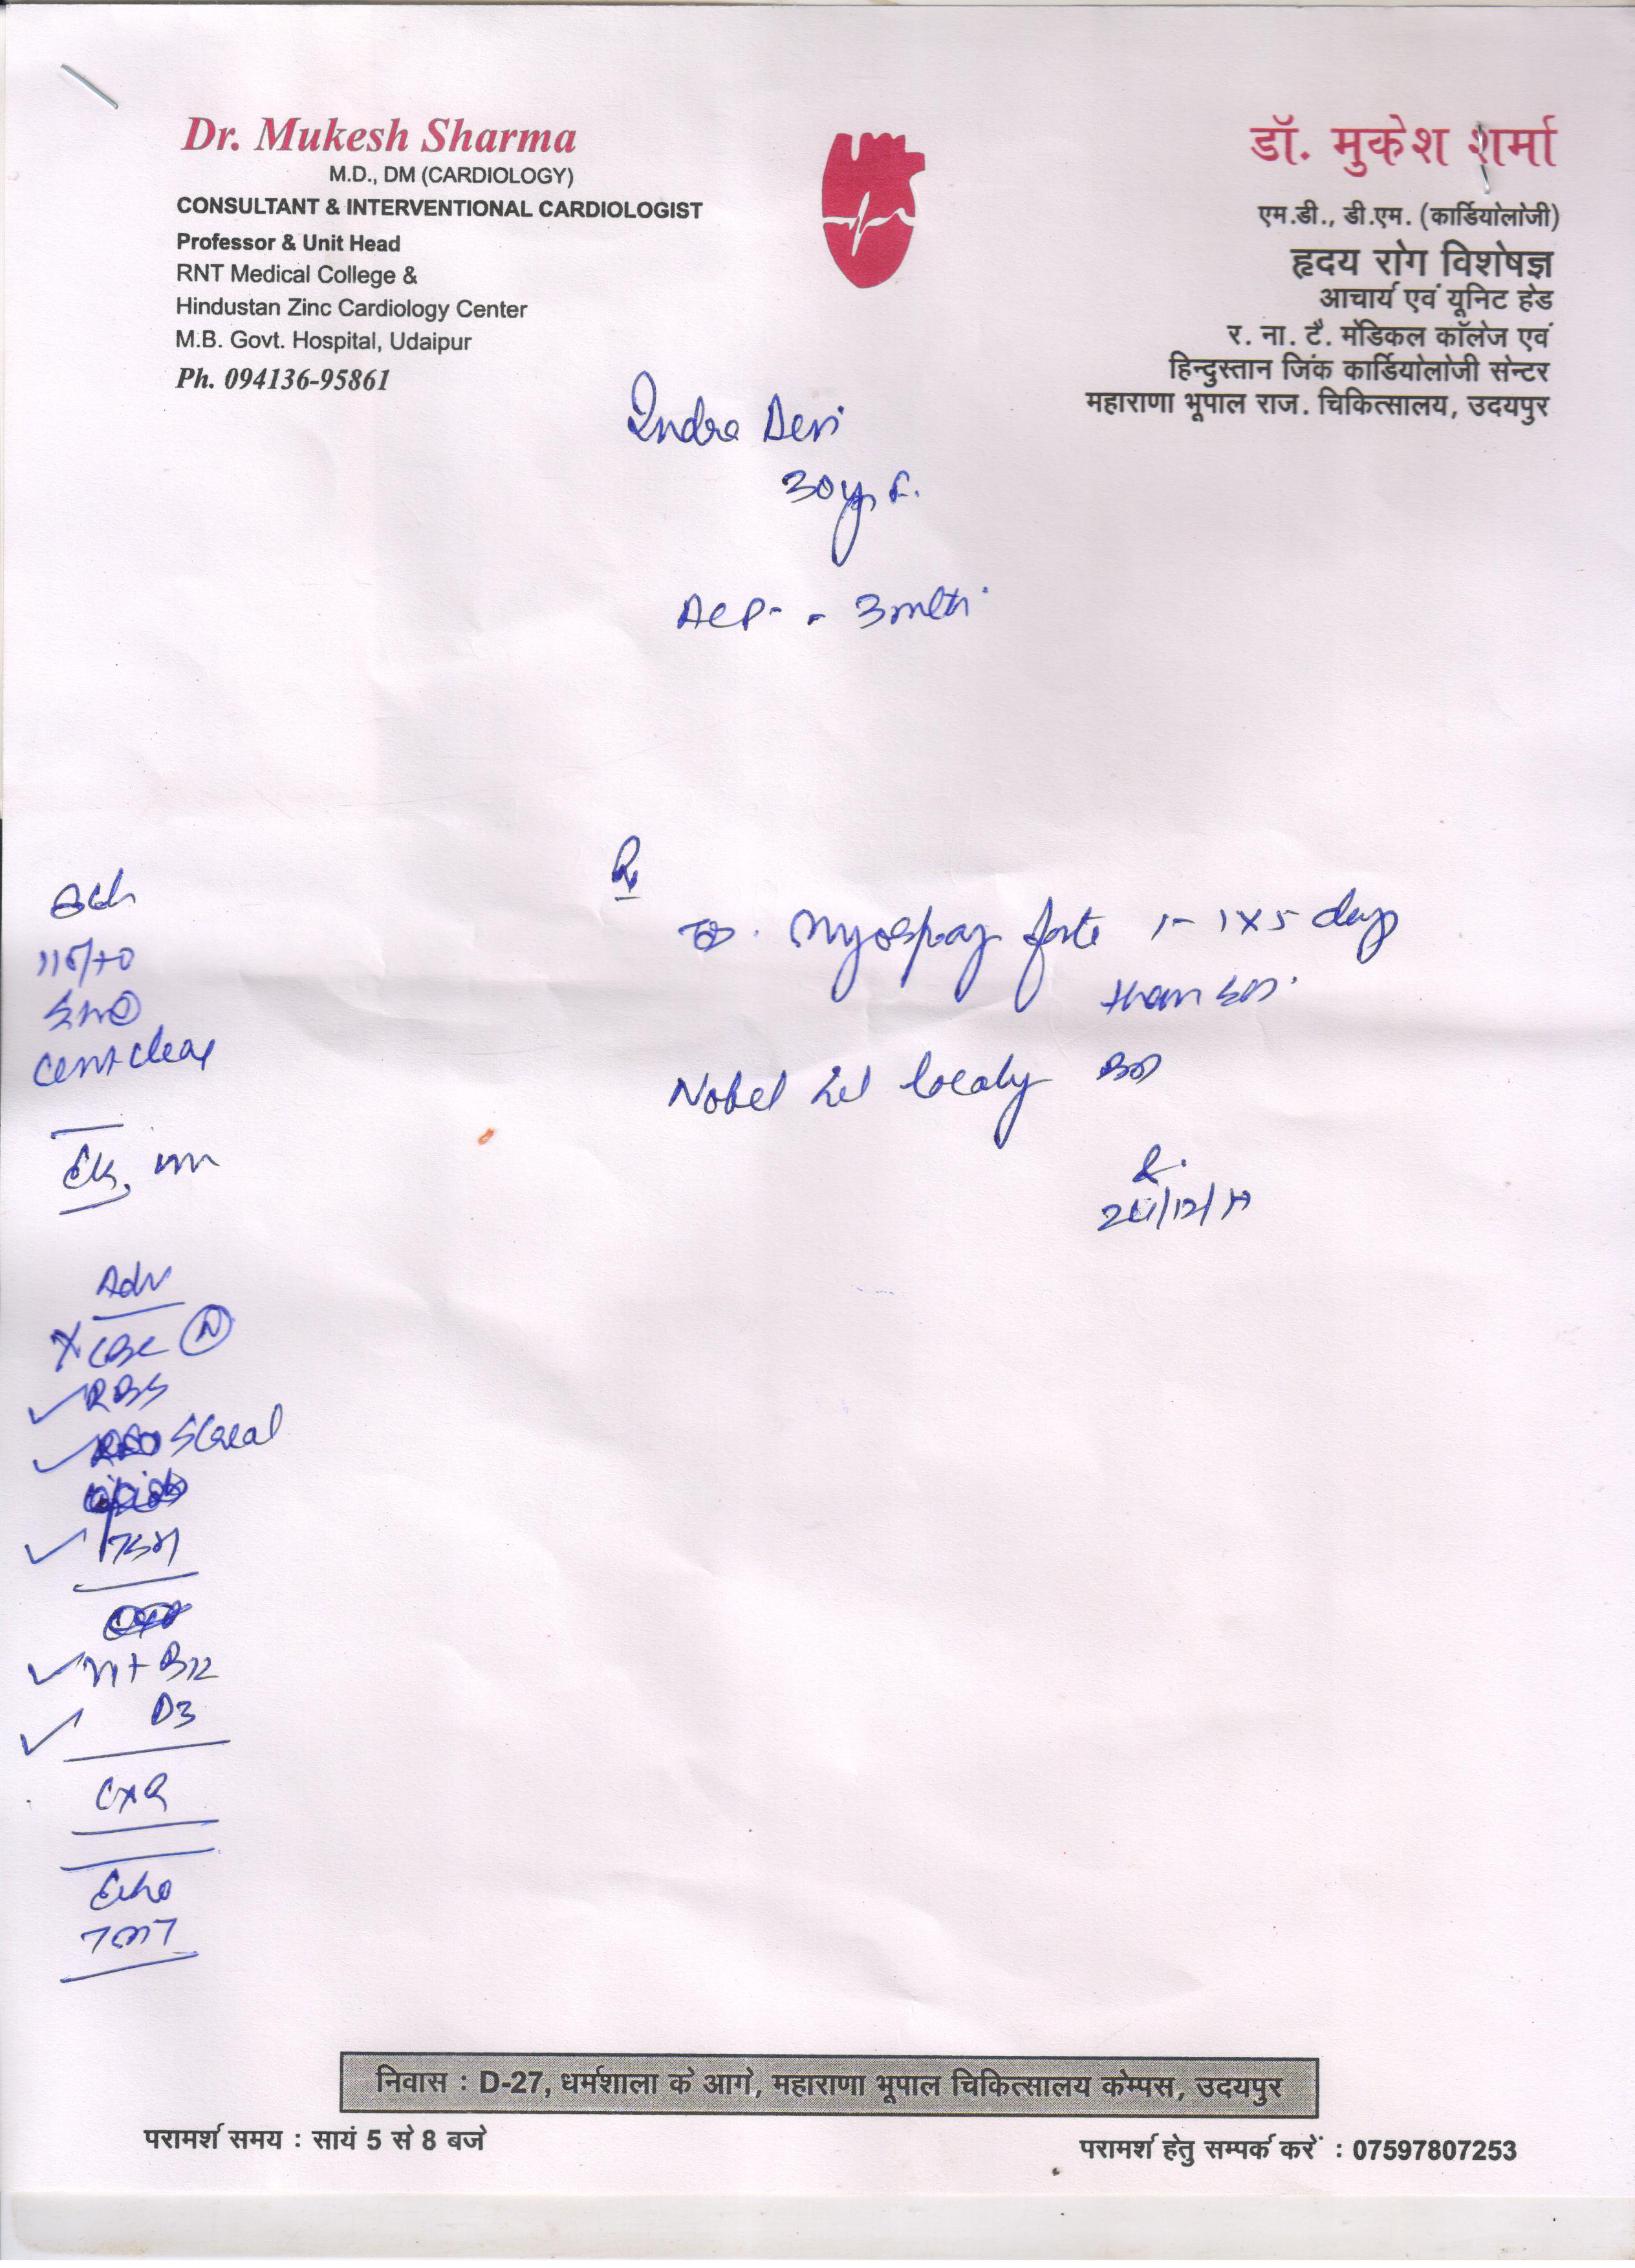 Dr. Mukesh Sharma
M.D., DM (CARDIOLOGY)
CONSULTANT & INTERVENTIONAL CARDIOLOGIST
Professor & Unit Head
RNT Medical College &
Hindustan Zinc Cardiology Center
M.B. Govt. Hospital, Udaipur
Ph. 094136-95861
डॉ. मुकेश शर्मा
एम.डी., डी.एम. (कार्डियोलोजी)
हृदय रोग विशेषज्ञ
आचार्य एवं यूनिट हेड
र. ना. टै. मेडिकल कॉलेज एवं
हिन्दुस्तान जिंक कार्डियोलोजी सेन्टर
महाराणा भूपाल राज. चिकित्सालय, उदयपुर
Indra Devi
30 yr F.
ACP - 3 mth
Rx
Myospaz forte 1-1 x 5 day
then SOS
Nobel gel localy
24/12/19
86/m
115/70
chest clear
Adv
X CBC (N)
✓ RBS
✓ S Creat
✓ TSH
✓ Vit B12
✓ D3
CXR
Echo
TMT
निवास : D-27, धर्मशाला के आगे, महाराणा भूपाल चिकित्सालय केम्पस, उदयपुर
परामर्श समय : सायं 5 से 8 बजे
परामर्श हेतु सम्पर्क करें : 07597807253